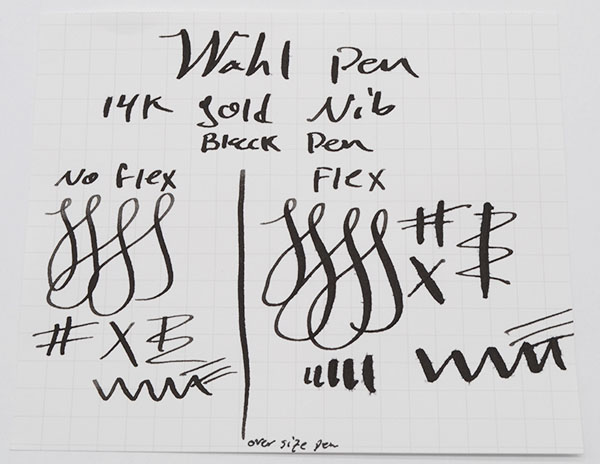 Wahl Pen
14K Gold Nib
Black Pen
No Flex
Flex
# X B
# X B
over size pen